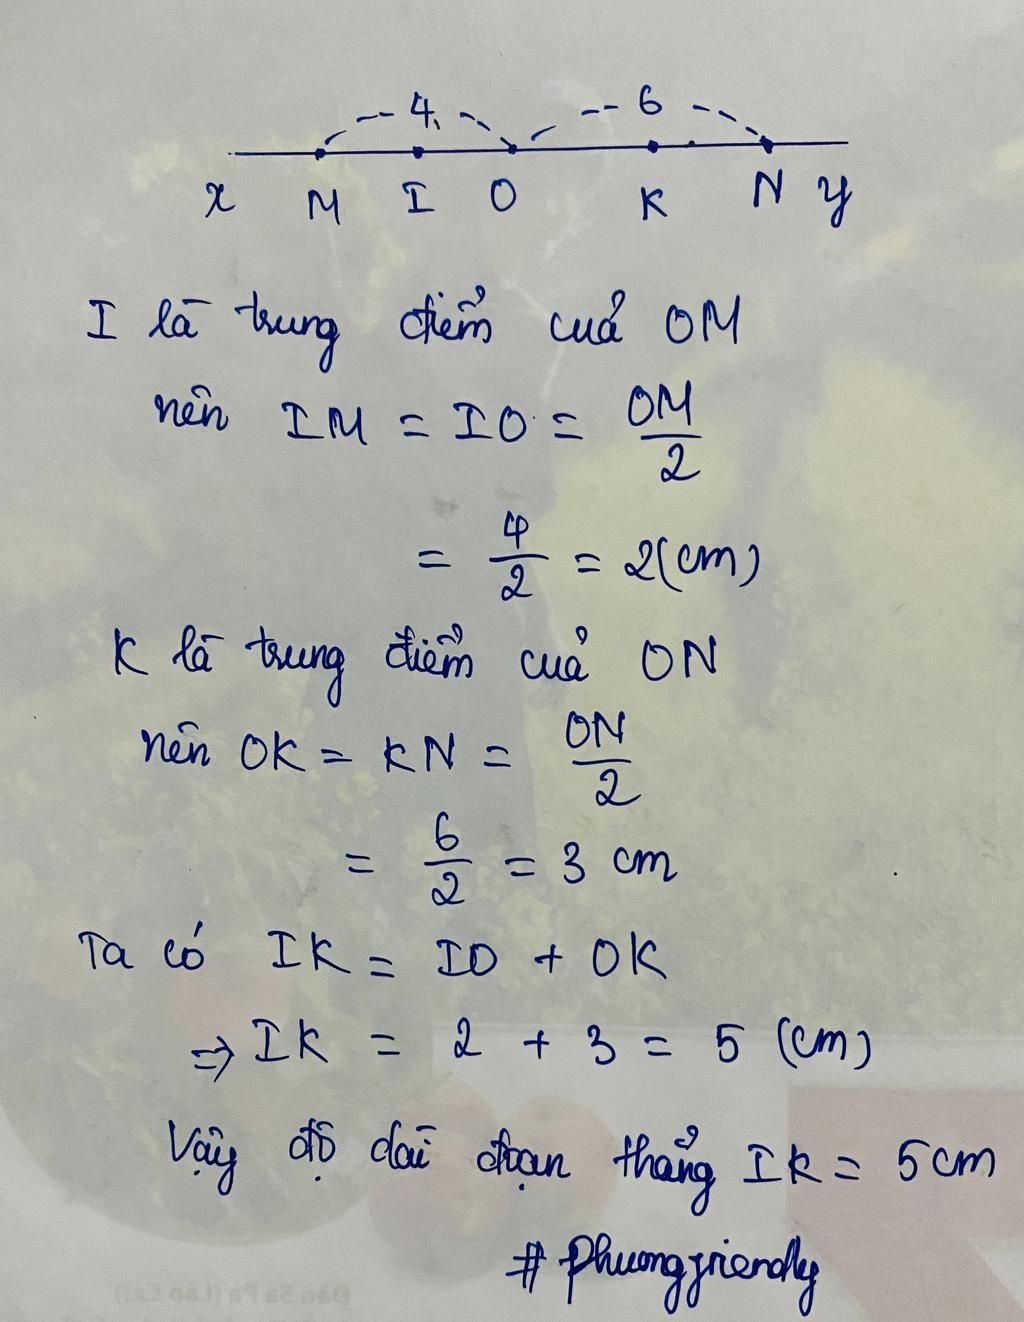 4 6
x M I O K N y
I là trung điểm của OM
nên IM = IO = OM/2
= 4/2 = 2(cm)
K là trung điểm của ON
nên OK = KN = ON/2
= 6/2 = 3 cm
Ta có IK = IO + OK
=> IK = 2 + 3 = 5 (cm)
Vậy độ dài đoạn thẳng IK = 5cm
# phuongfriendly
Đào Sa Pa (Lào Cai)